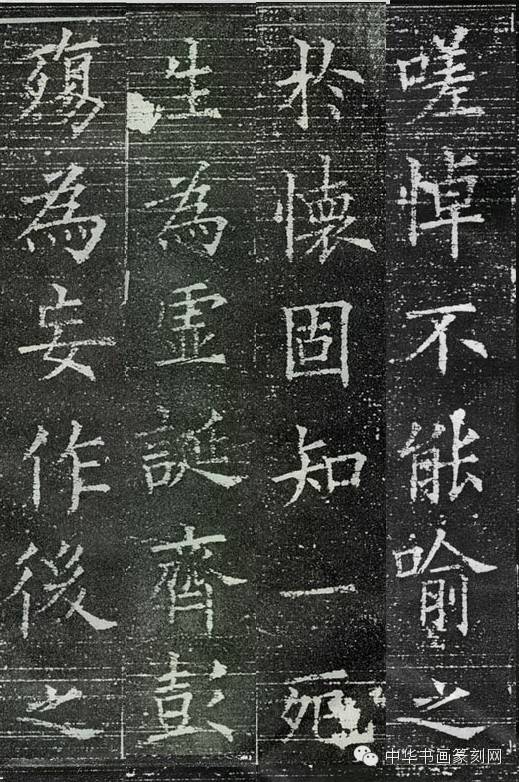 嗟悼不能喻之
於懷固知一死
生為虛誕齊彭
殤為妄作後之
中华书画篆刻网